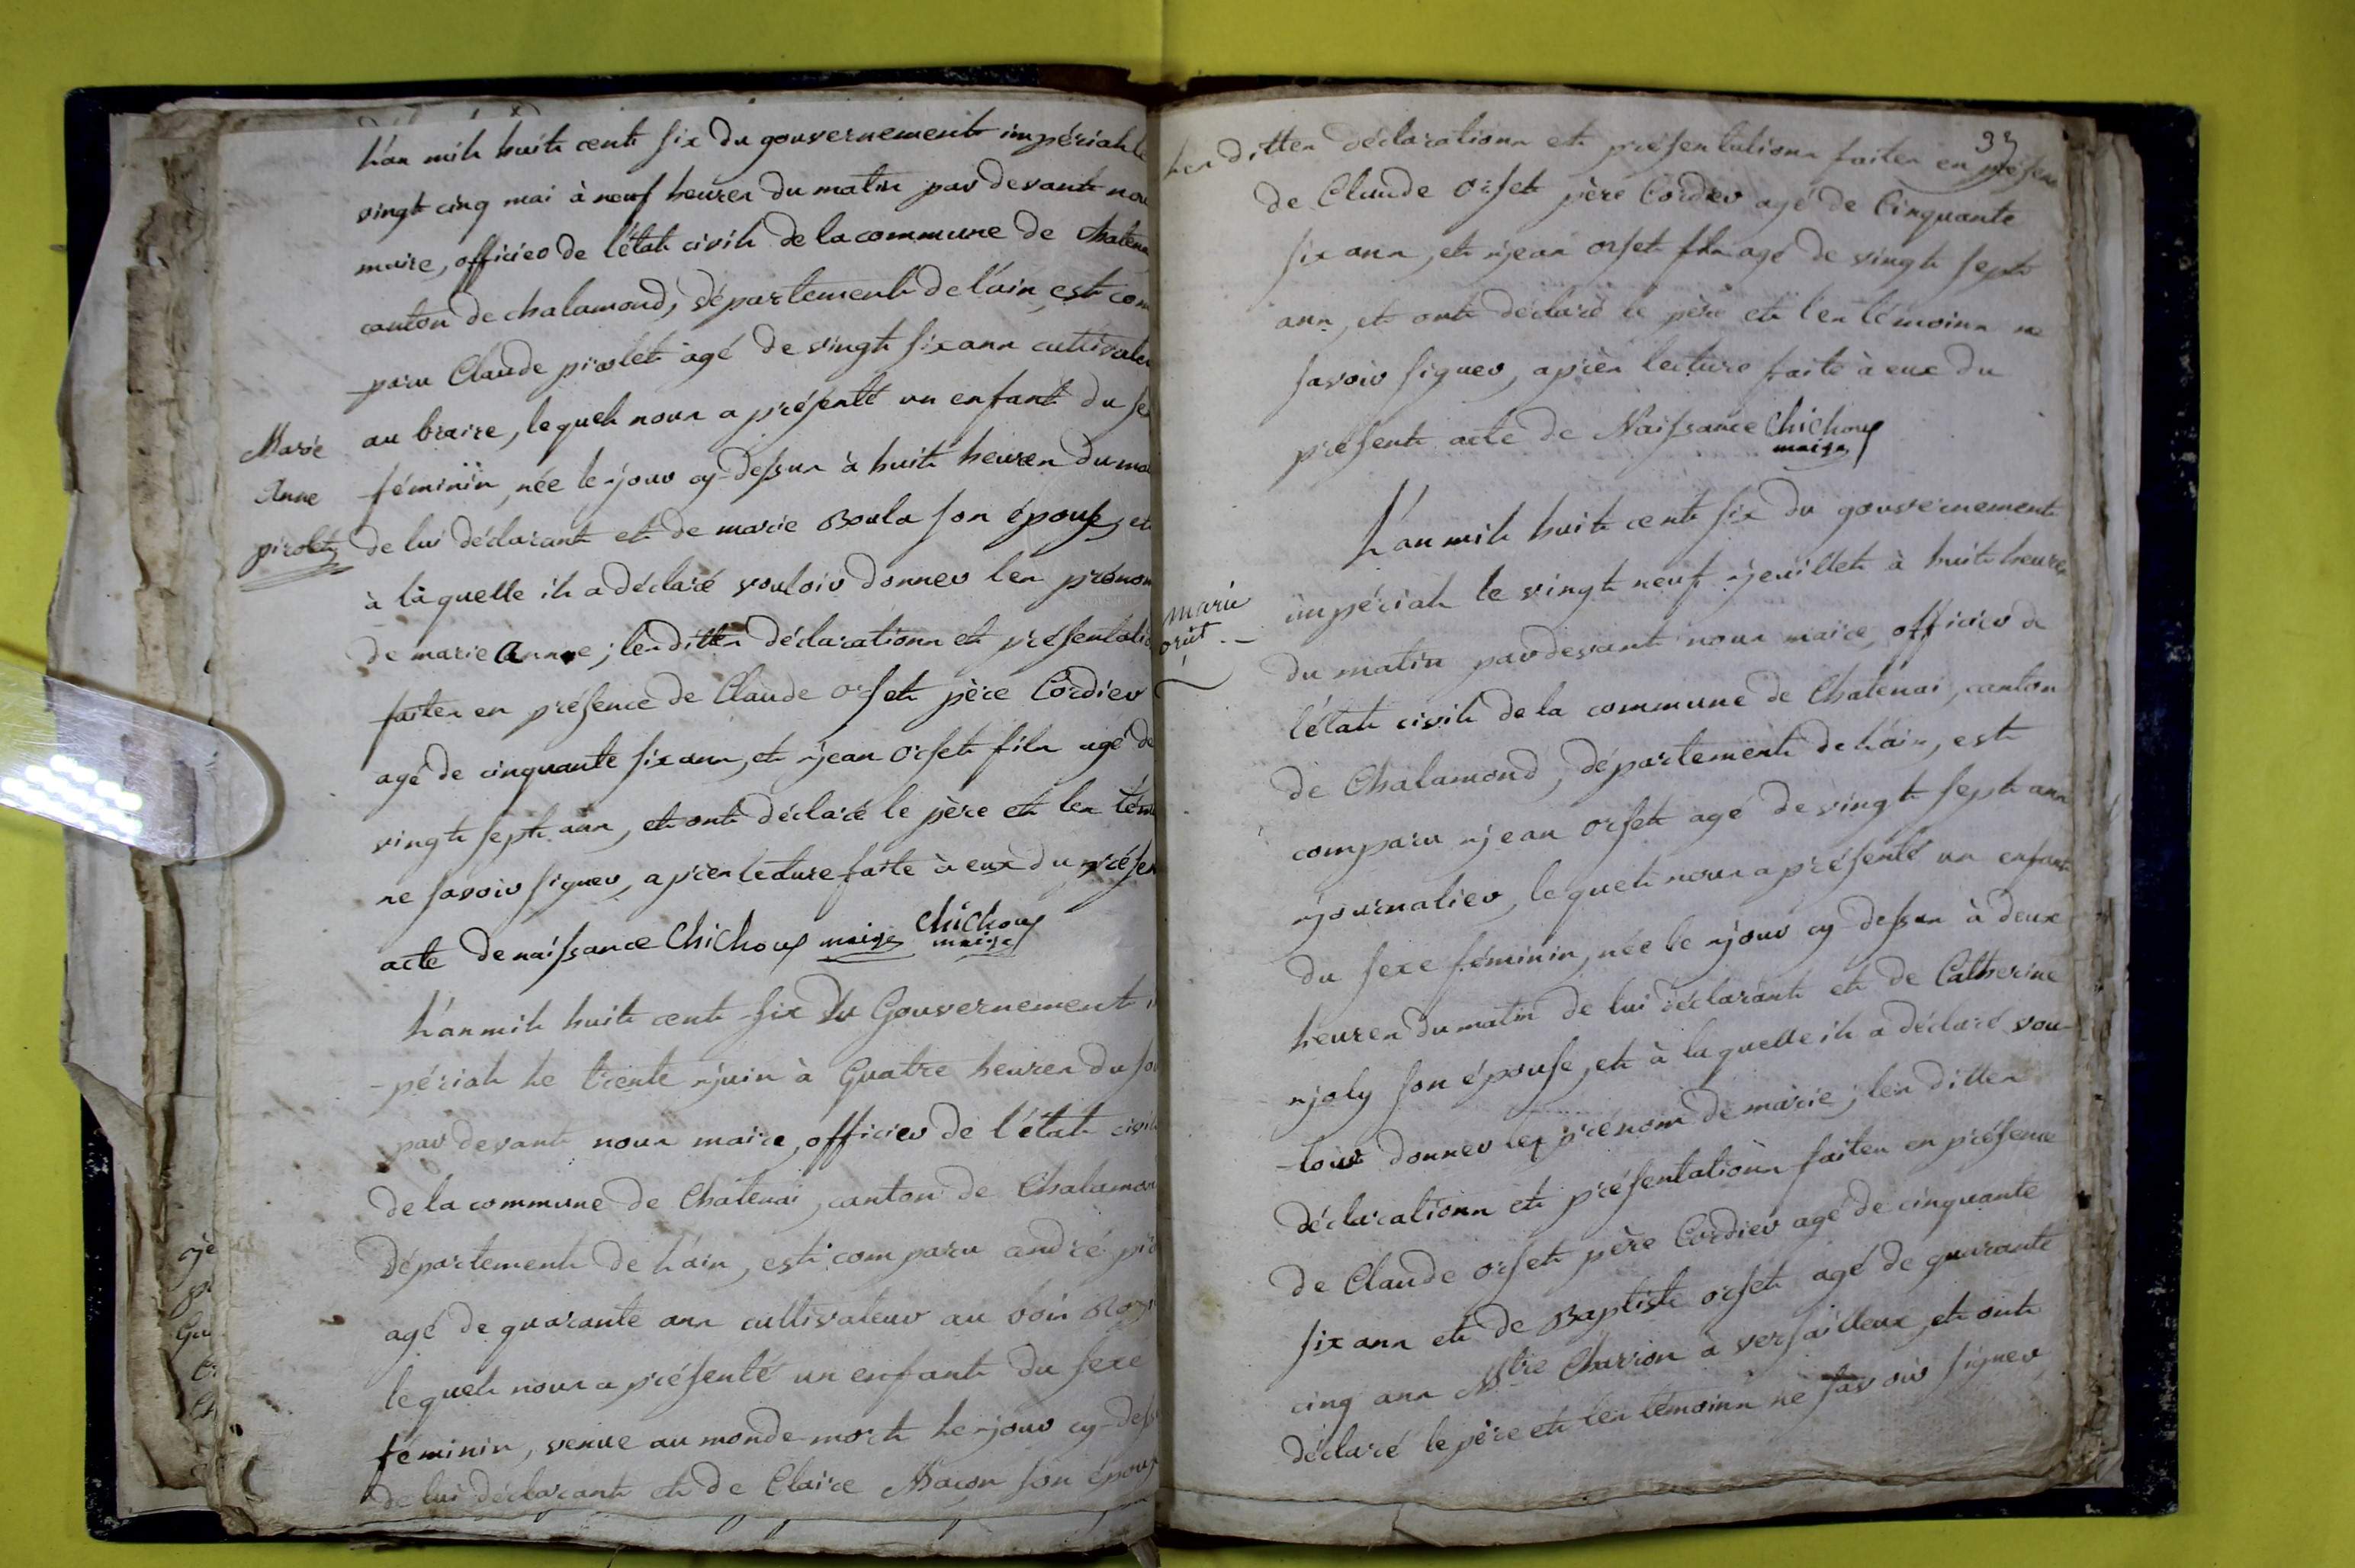 L'an mil huit cent six du gouvernement impérial le
vingt cinq mai à neuf heures du matin par devant nou
maire, officier de l'état civil de la commune de Chatena
canton de chalamond, département de l'ain, est com
paru Claude pirolet agé de vingt six ans cultivateu
au braire, lequel nous a présenté un enfant du se
féminin, née le jour cy-dessus à huit heures du ma
de lui déclarant et de marie Boula son épouse, et
à laquelle il a déclaré vouloir donner les prénom
de marie Anne; les dittes déclarations et présentatio
faites en présence de Claude orset père Cordier
agé de cinquante six ans, et jean orset fils agé de
vingt sept ans, et ont déclaré le père et les témo
ne savoir signer, après lecture faite à eux du présen
acte de naissance Chichoux maire Chichoux
maire
Marie
Anne
pirolet
L'an mil huit cent six du Gouvernement i
-périal le trente juin à Quatre heures du soi
par devant nous maire, officier de l'état civil
de la commune de Chatenai, canton de Chalamon
Département de l'ain, est comparu andré pir
agé de quarante ans cultivateur au bois
lequel nous a présenté un enfant du sexe
féminin, venue au monde mort le jour cy-dess
de lui déclarant et de Claire Maçon son épouse
33
les dittes déclarations et présentations faites en présen
de Claude orset père Cordier agé de Cinquante
six ans, et jean orset fils agé de vingt sept
ans, et ont déclaré le père et les témoins ne
savoir signer, après lecture faite à eux du
présent acte de Naissance Chichoux
maire
marie
orset
L'an mil huit cent six du gouvernement
impérial le vingt neuf jeuillet à huit heures
du matin par devant nous maire, officier de
l'état civil de la commune de Chatenai, canton
de Chalamond, département de l'ain, est
comparu jean orset agé de vingt sept ans
journalier, lequel nous a présenté un enfant
du sexe féminin, née le jour cy-dessus à deux
heures du matin de lui déclarant et de Catherine
joly son épouse, et à laquelle il a déclaré vou-
-loir donner les prénom de marie; les dittes
déclarations et présentations faites en présence
de Claude orset père Cordier agé de cinquante
six ans et de Baptiste orset agé de quarante
cinq ans Mtre Charron à versailleux, et ont
déclaré le père et les témoins ne savoir signer